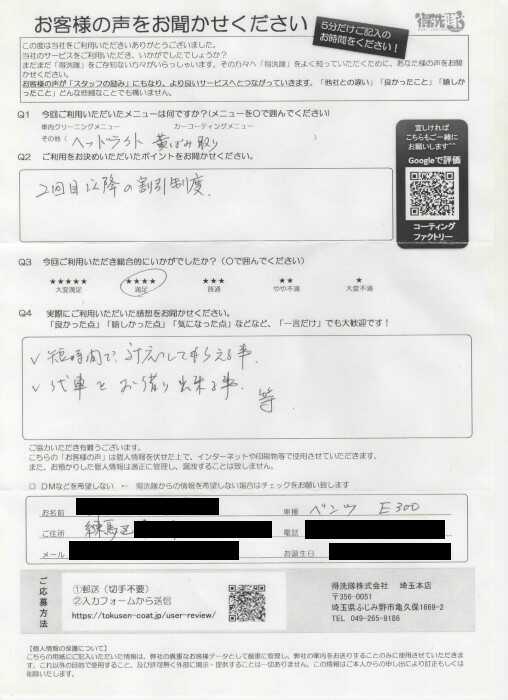 お客様の声をお聞かせください
5分だけご記入の
お時間をください!
得洗隊
この度は当社をご利用いただきありがとうございました。
当社のサービスをご利用いただき、いかがでしたでしょうか?
まだまだ「得洗隊」をご存知ない方々がいらっしゃいます。その方々へ「得洗隊」をよく知っていただくために、あなた様の声をお聞
かせください。
お客様の声が「スタッフの励み」にもなり、より良いサービスへとつながっていきます。「他社との違い」「良かったこと」「嬉しかっ
たこと」どんな些細なことでも構いません。
Q1 今回ご利用いただいたメニューは何ですか?(メニューを○で囲んでください)
車内クリーニングメニュー カーコーティングメニュー
その他( ヘッドライト 黄ばみ取り )
Q2 ご利用をお決めいただいたポイントをお聞かせください。
2回目以降の割引制度
宜しければ
こちらもご一緒に
お願いします^^
Googleで評価
コーティング
ファクトリー
Q3 今回ご利用いただき総合的にいかがでしたか?(○で囲んでください)
★★★★★ ★★★★ ★★★ ★★ ★
大変満足 満足 普通 やや不満 大変不満
Q4 実際にご利用いただいた感想をお聞かせください。
「良かった点」「嬉しかった点」「気になった点」などなど、「一言だけ」でも大歓迎です!
✓短時間で、対応してもらえる事.
✓代車をお借り出来る事.
等
ご協力いただき有難うございます。
こちらの「お客様の声」は個人情報を伏せた上で、インターネットや印刷物等で使用させていただきます。
また、お預かりした個人情報は適正に管理し、漏洩することは致しません。
□ DMなどを希望しない ← 得洗隊からの情報を希望しない場合はチェックをお願い致します
お名前 車種 ベンツ E300
ご住所 練馬区 電話
メール お誕生日
ご応募方法
①郵送(切手不要)
②入力フォームから送信
https://tokusen-coat.jp/user-review/
得洗隊株式会社 埼玉本店
〒356-0051
埼玉県ふじみ野市亀久保1669-2
TEL 049-265-9186
【個人情報の保護について】
こちらの用紙にご記入いただいた情報は、弊社の貴重なお客様データとして厳重に管理し、弊社の案内をお送りすることのみに使用させていただきま
す。これ以外の目的で使用すること、及び許可無く外部に開示・提供することは一切ありません。この情報はご本人からの申し出により訂正もしくは
削除いたします。